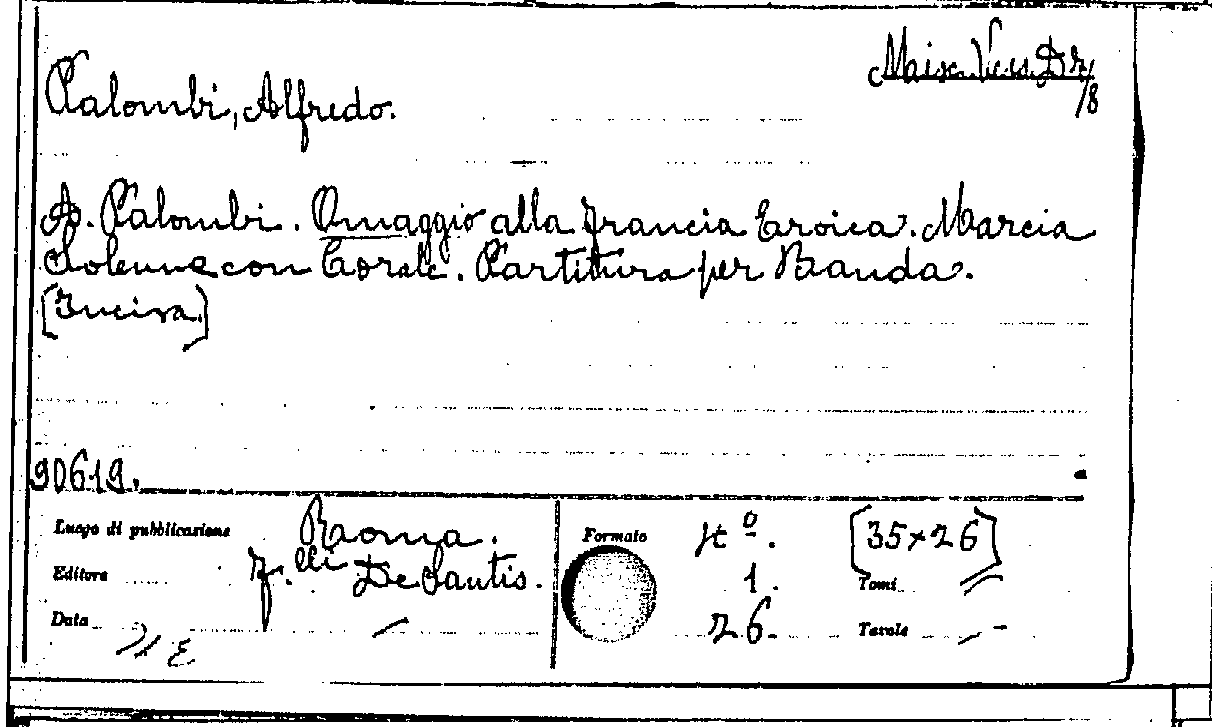 Palombi, Alfredo.
A. Palombi. Omaggio alla Francia Eroica. Marcia
Solenne con Corale. Partitura per Banda.
(Incisa)
90619.
Luogo di pubblicazione Roma.
Editore F.lli De Santis.
Data /
Formato 4º. [35×26]
1. Tomi
26. Tavole -